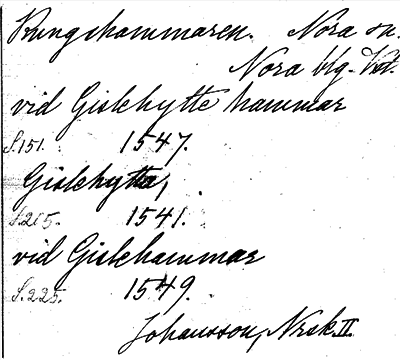 Kungshammaren. Nora sn.
Nora blg. Vstm.
vid Gislehytte hammar
S. 151. 1547.
Gislehytta,
S. 215. 1541.
vid Gislehammar
S. 225. 1549.
Johansson, Nrsk. II.